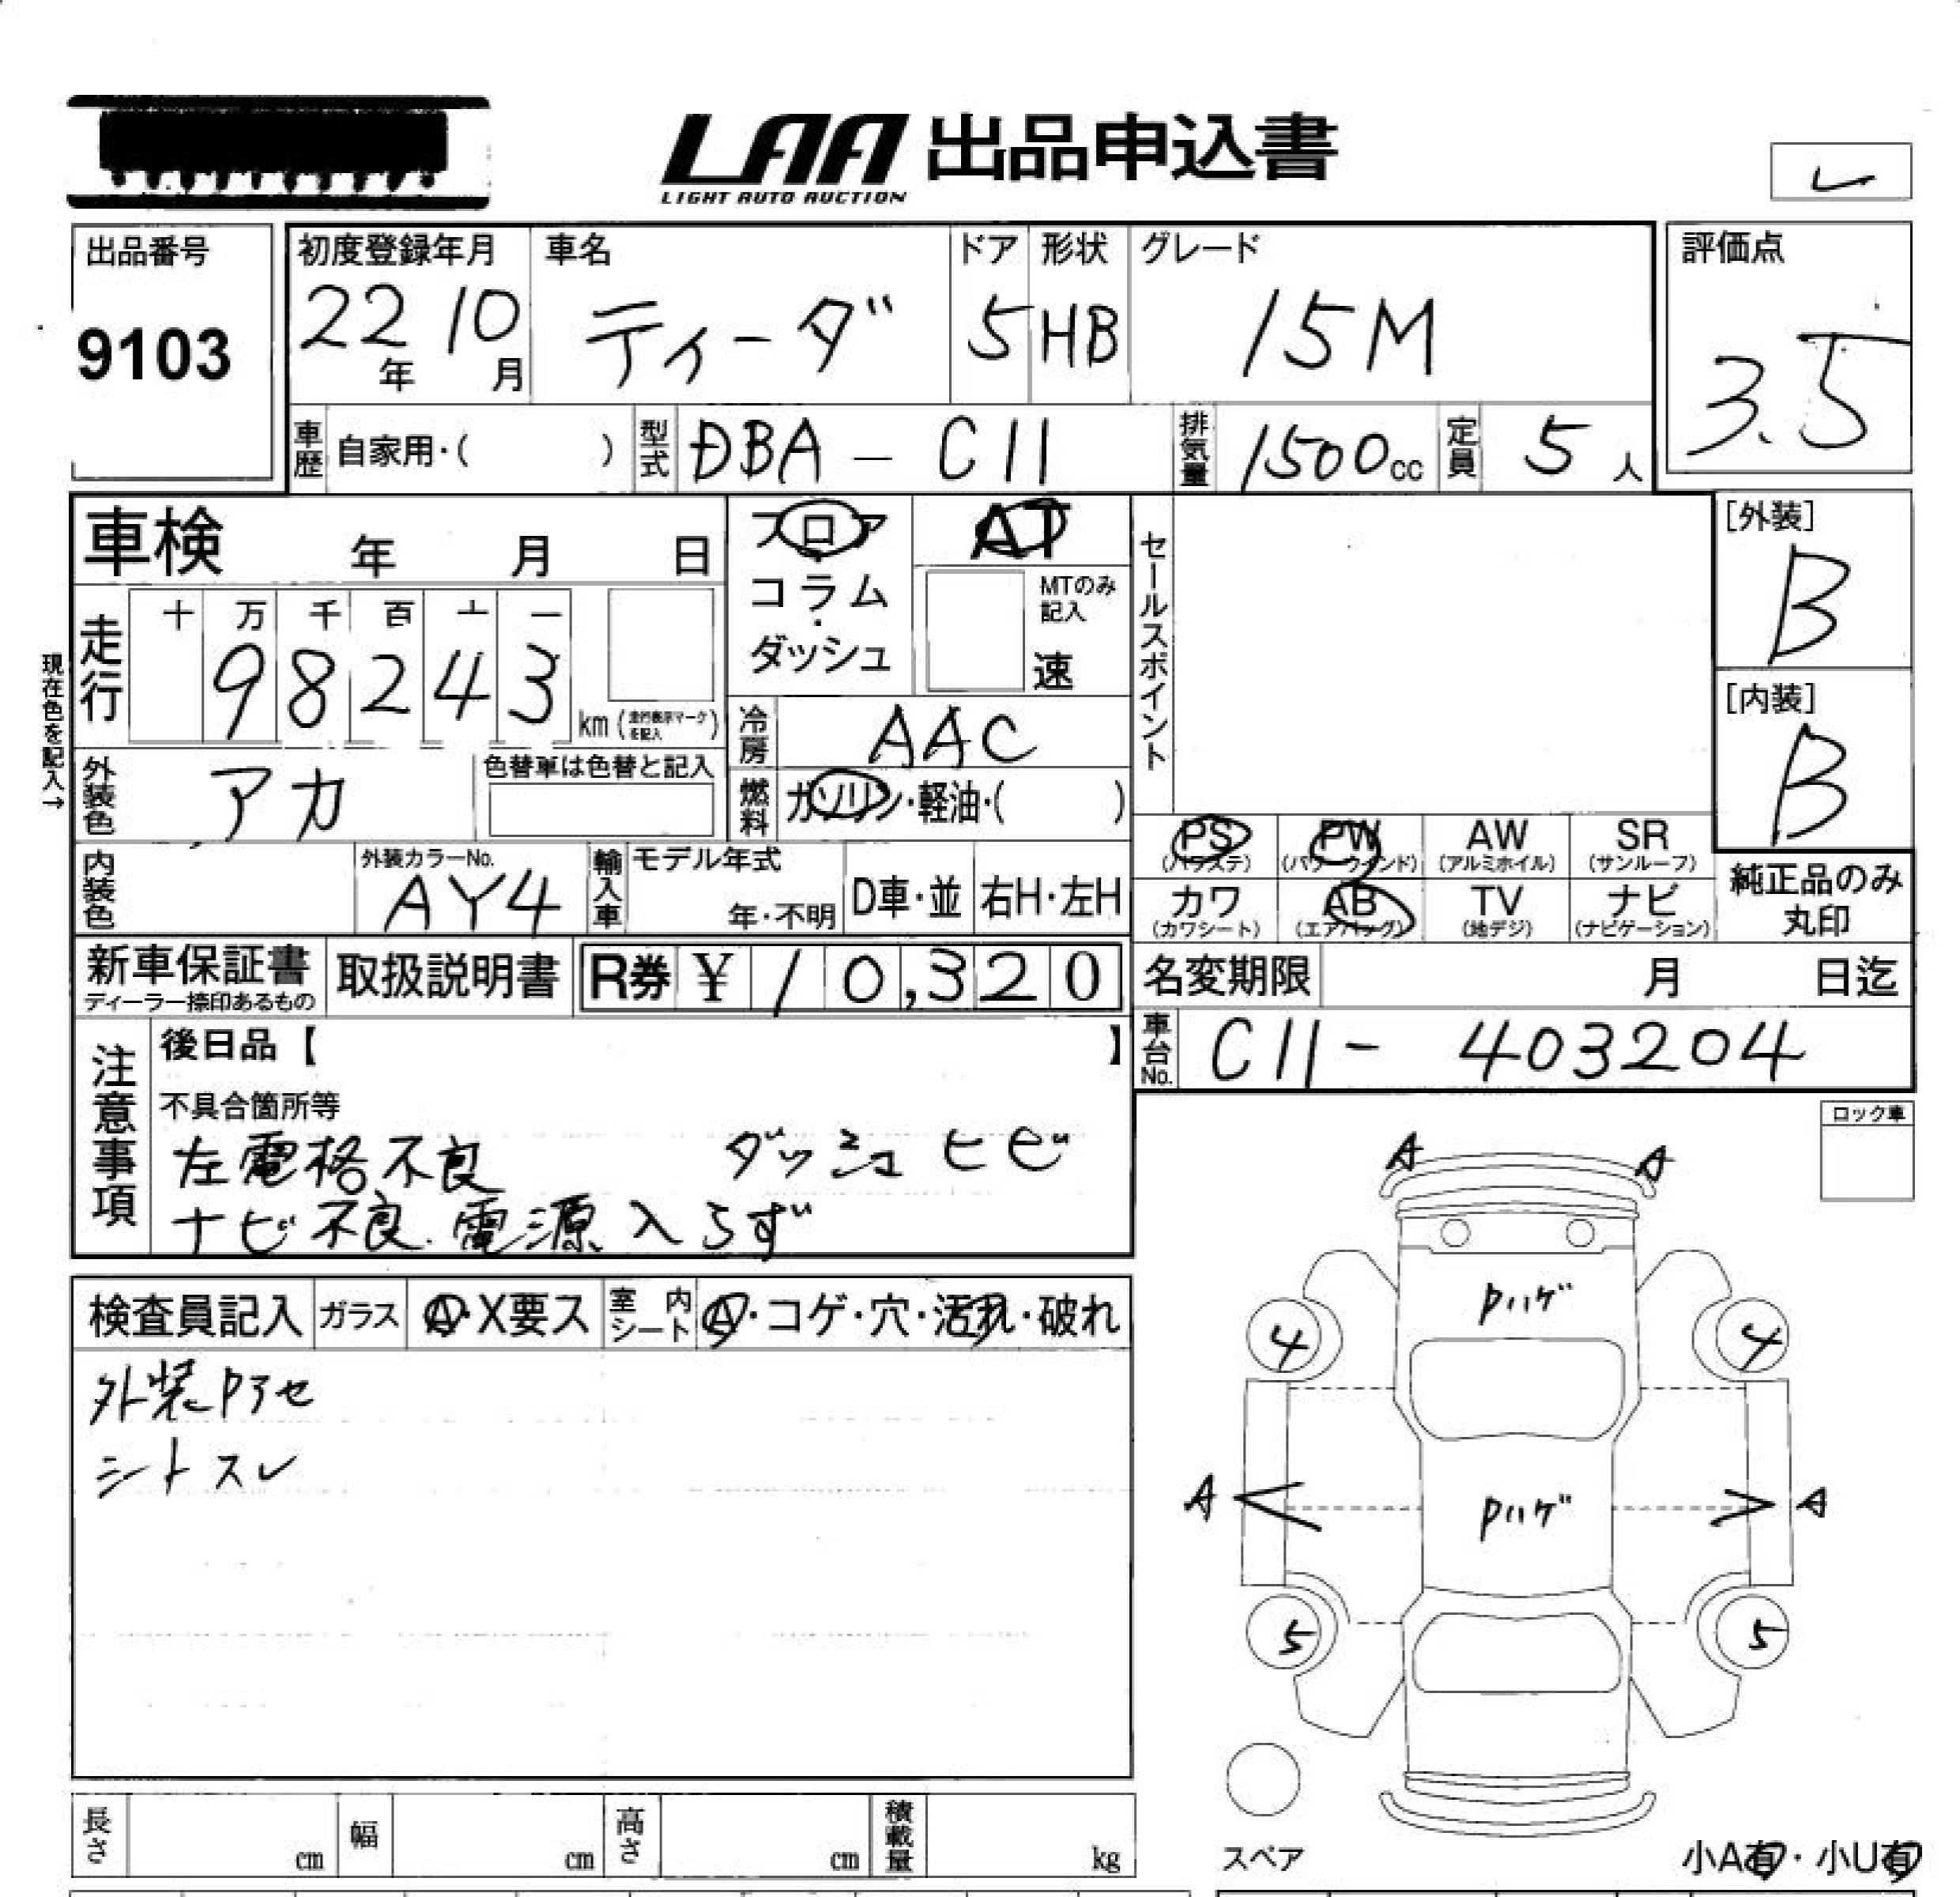 LAA 出品申込書
LIGHT AUTO AUCTION
レ
出品番号
9103
初度登録年月
22年 10月
車名
ティーダ
ドア
5
形状
HB
グレード
15M
評価点
3.5
車歴 自家用・( )
型式 DBA - C11
排気量 1500cc
定員 5人
車検 年 月 日
フロア
コラム
・
ダッシュ
AT
MTのみ
記入
速
セールスポイント
[外装]
B
[内装]
B
現在色を記入→
走行
十 万 千 百 十 一
98243
km (走行表示マークを記入)
冷房 AAC
外装色 アカ
色替車は色替と記入
燃料 ガソリン・軽油・( )
内装色
外装カラーNo.
AY4
輸入車
モデル年式
年・不明
D車・並
右H・左H
PS
(パワステ)
PW
(パワーウインド)
AW
(アルミホイル)
SR
(サンルーフ)
カワ
(カワシート)
AB
(エアバッグ)
TV
(地デジ)
ナビ
(ナビゲーション)
純正品のみ
丸印
新車保証書
ディーラー捺印あるもの
取扱説明書
R券 ¥10,320
名変期限 月 日迄
車台No. C11- 403204
注意事項
後日品【 】
不具合箇所等
左電格不良 ダッシュヒビ
ナビ不良.電源入らず
ロック車
検査員記入
ガラス A・X要ス
室内シート A・コゲ・穴・汚れ・破れ
外装Pアセ
シートスレ
A A
Pハゲ
4 4
A Pハゲ A
5 5
スペア
小A有・小U有
長さ cm
幅 cm
高さ cm
積載量 kg